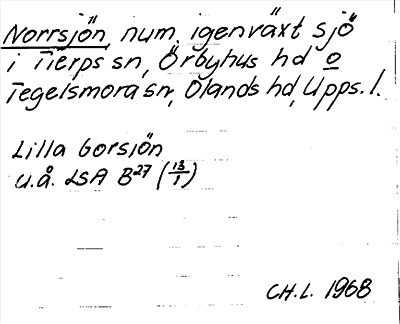 Norrsjön, num. igenväxt sjö
i Tierps sn, Örbyhus hd o
Tegelsmora sn, Olands hd, Upps. l.
Lilla Gorsjön
u.å. LSA B27 (13/1)
CH.L. 1968